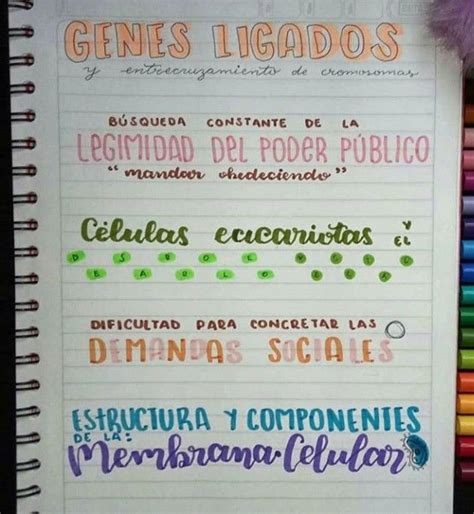 GENES LIGADOS
y entrecruzamiento de cromosomas
BÚSQUEDA CONSTANTE DE LA
LEGIMIDAD DEL PODER PÚBLICO
"mandar obedeciendo"
Células eucariotas Y EL
DESARROLLO
DIFICULTAD PARA CONCRETAR LAS
DEMANDAS SOCIALES
ESTRUCTURA Y COMPONENTES
DE LA:
Membrana Celular